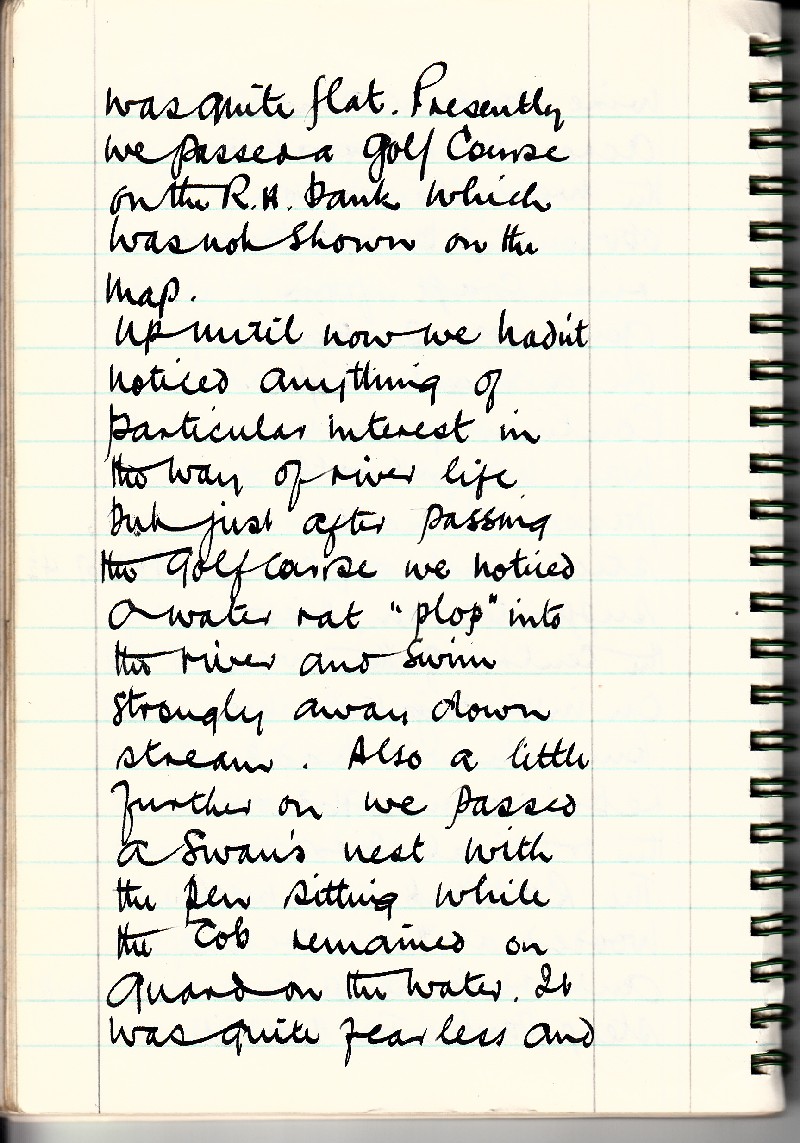 was quite flat. Presently
we passed a golf Course
on the R.H. bank which
was not shown on the
map.
Up until now we hadn't
noticed anything of
particular interest in
the way of river life
but just after passing
the Golf Course we noticed
a water rat "plop" into
the river and swim
strongly away down
stream. Also a little
further on we passed
a Swan's nest with
the pen sitting while
the Cob remained on
guard on the water. It
was quite fearless and